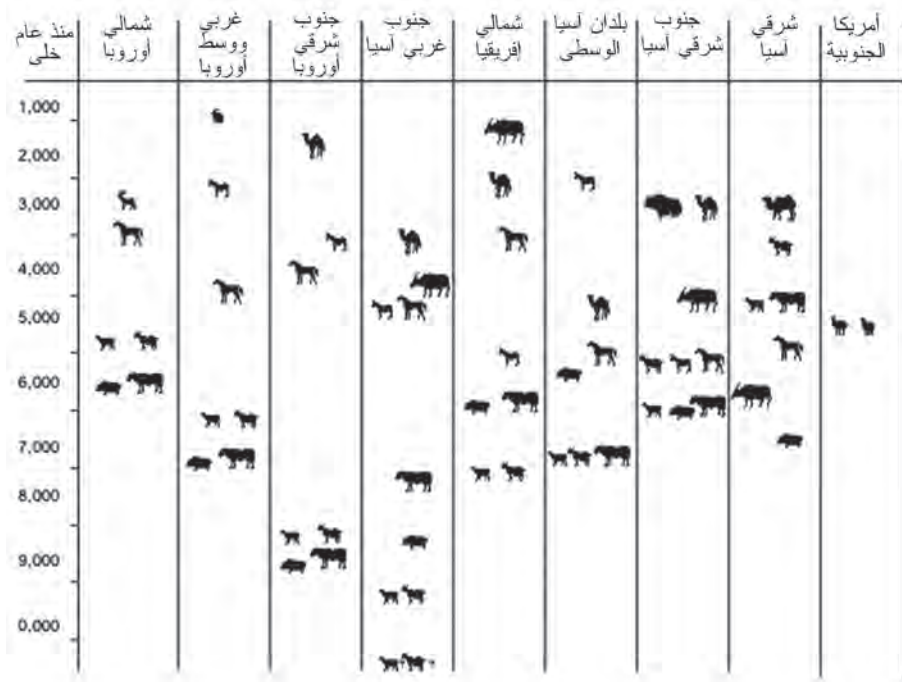 منذ عام
خلى
شمالي
أوروبا
غربي
ووسط
أوروبا
جنوب
شرقي
أوروبا
جنوب
غربي آسيا
شمالي
إفريقيا
بلدان آسيا
الوسطى
جنوب
شرقي آسيا
شرقي
آسيا
أمريكا
الجنوبية
1,000
2,000
3,000
4,000
5,000
6,000
7,000
8,000
9,000
0,000